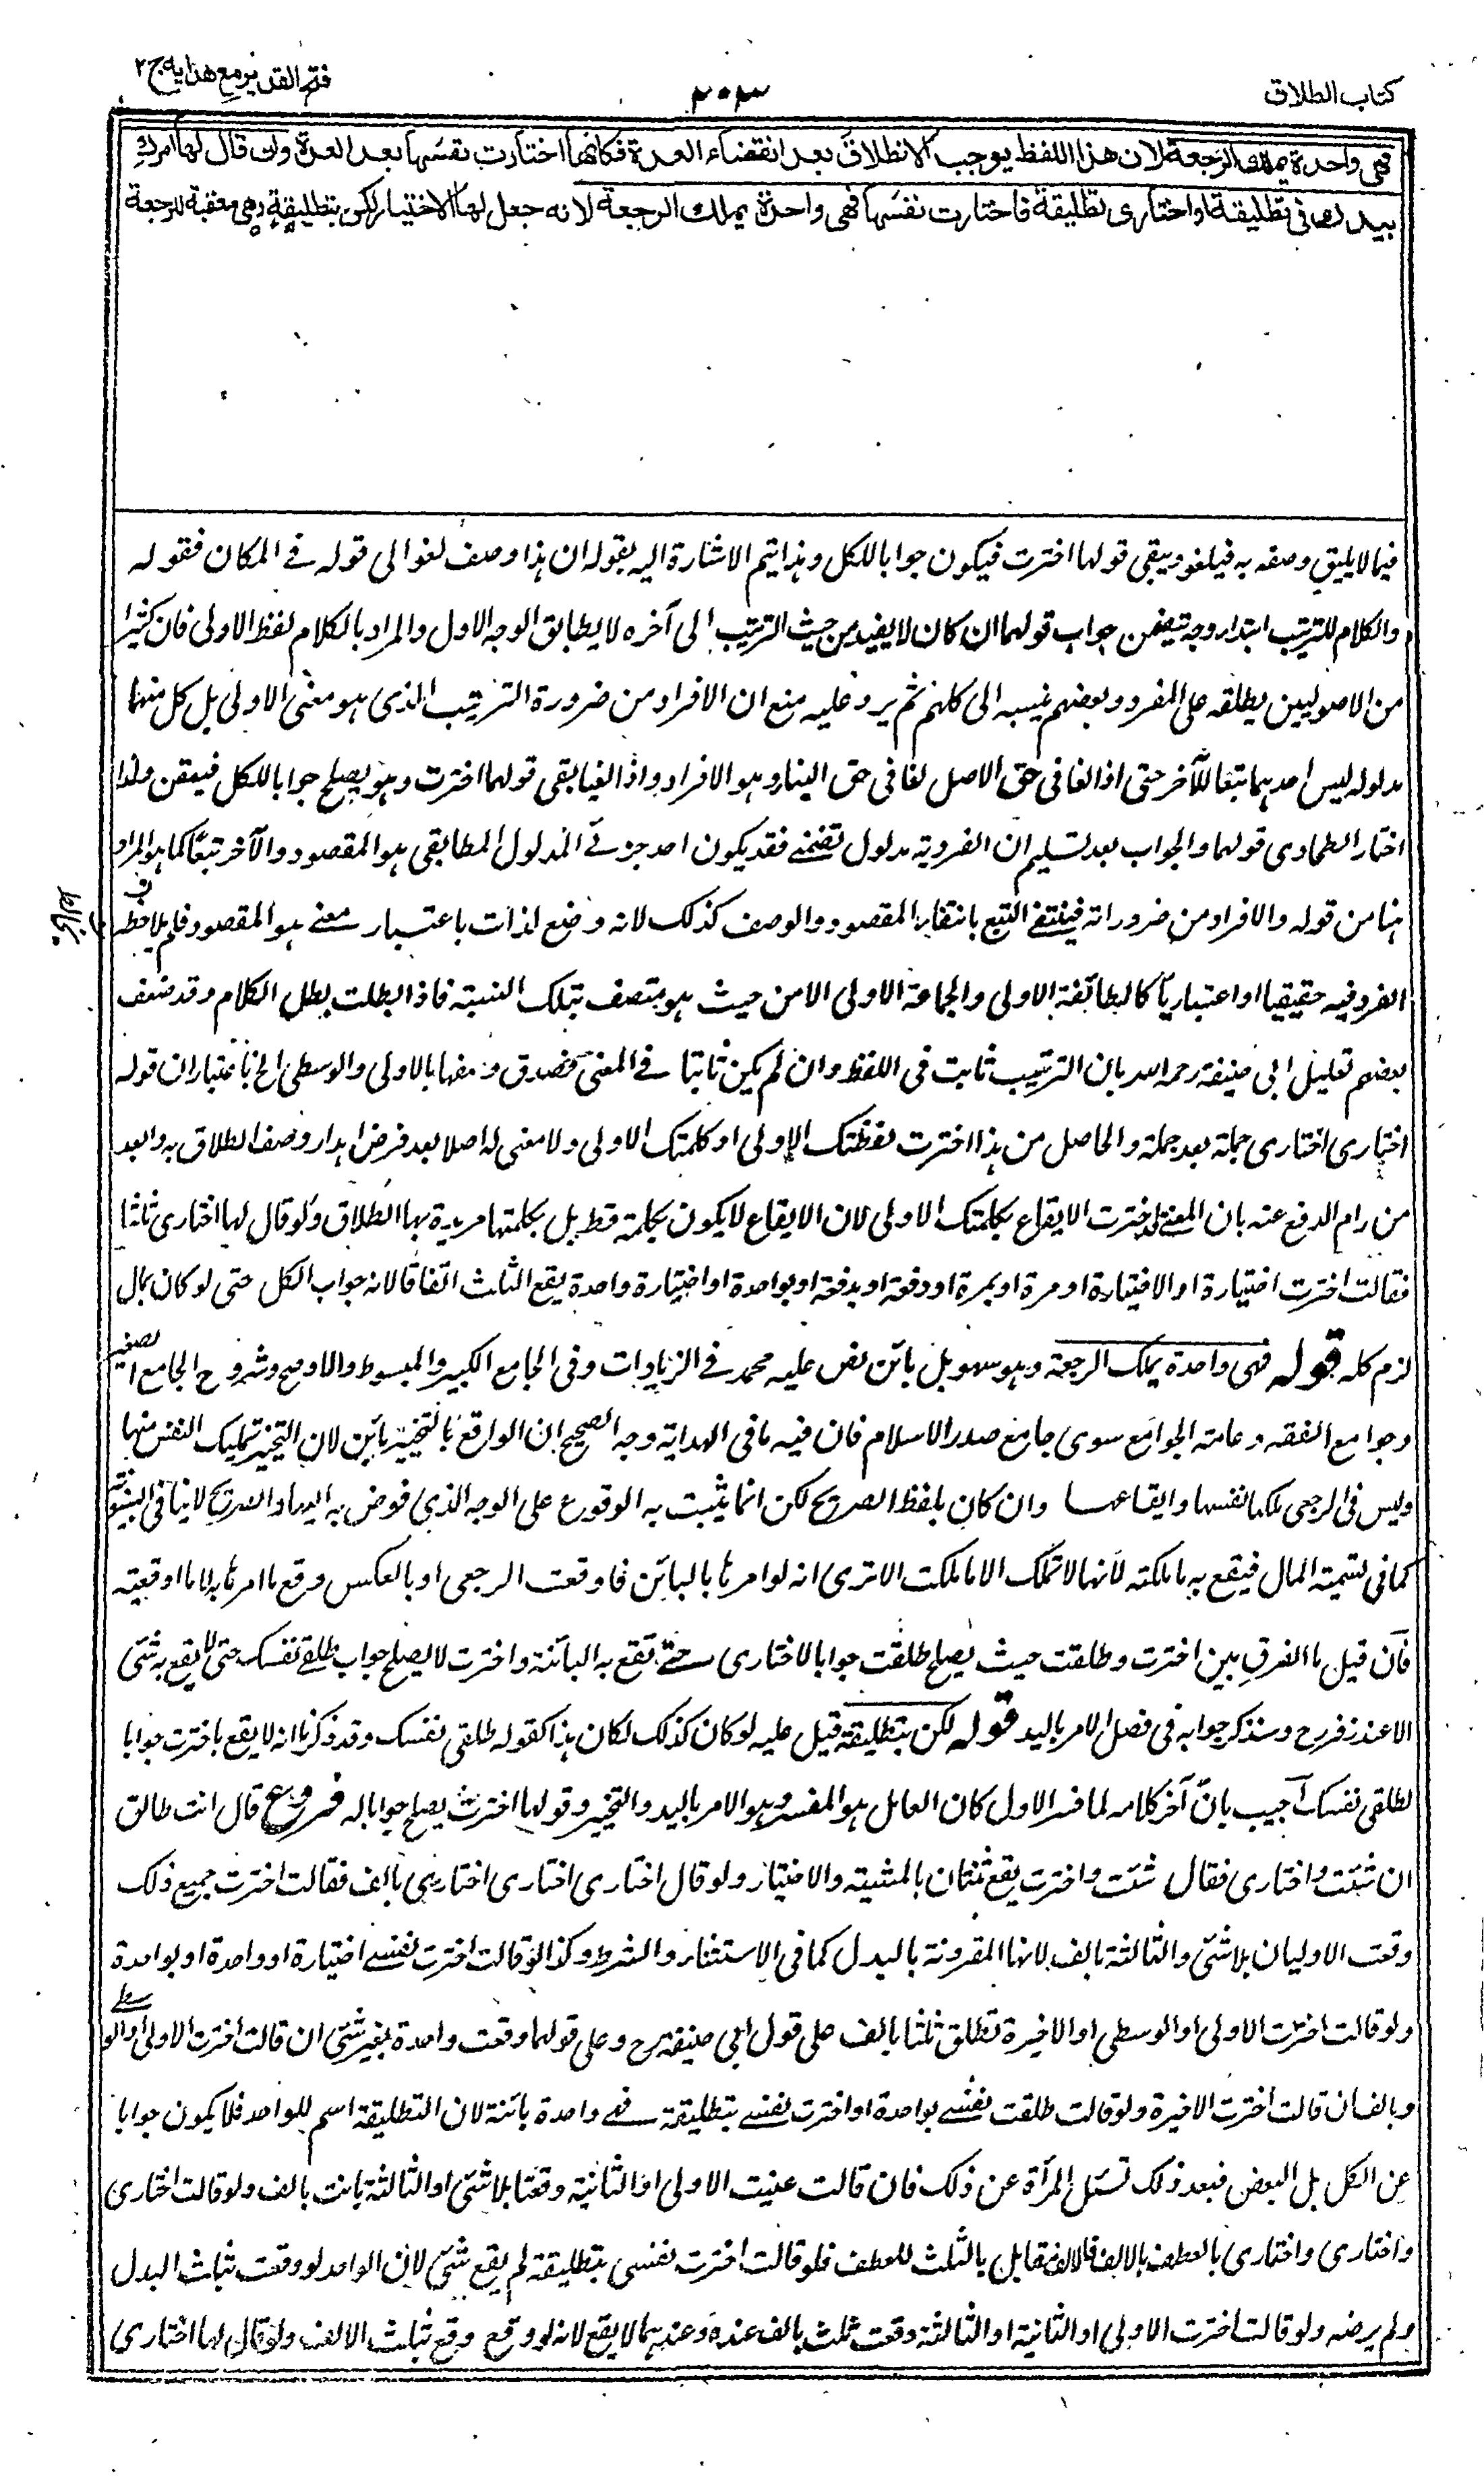 كتاب الطلاق
٢٠٣
فتح القدير مع هدايه ج ٢
فهي واحدة يملك الرجعة لان هذا اللفظ يوجب الانطلاق بعد انقضاء العدة فكانها اختارت نفسها بعد العدة وان قال لها امرك
بيدك في تطليقة او اختاري تطليقة فاختارت نفسها فهي واحدة يملك الرجعة لانه جعل لها الاختيار لكن بتطليقة وهي معقبة للرجعة
فيما لا يليق وصفه به فيلغو ويبقى قولها اخترت فيكون جوابا للكل وهذا يتم الاشارة اليه بقوله ان هذا وصف لغو الى قوله في المكان فقوله
والكلام للترتيب ابتداء وجه يتضمن جواب قولهما ان كان لا يفيد من حيث الترتيب الى آخره لا يطابق الوجه الاول والمراد بالكلام لفظ الاولى فان كثيرا
من الاصوليين يطلقه على المفرد وبعضهم ينسبه الى كلهم ثم يرد عليه منع ان الافراد من ضرورة الترتيب الذي هو معنى الاولى بل كل منهما
مدلوله ليس احدهما تبعا للآخر حتى اذا لغا في حق الاصل لغا في حق البناء وهو الافراد واذا لغيا بقى قولها اخترت وهو يصلح جوابا للكل فيقعن ولذا
اختار الطحاوي قولهما والجواب بعد تسليم ان الفردية مدلول تضمني فقد يكون احد جزئي المدلول المطابقي هو المقصود والآخر تبعا كما هو المراد
هنا من قوله والافراد من ضروراته فينتفي التبع بانتفاء المقصود والوصف كذلك لانه وضع لذات باعتبار معنى هو المقصود فلم يلاحظ
الفرد فيه حقيقيا او اعتباريا كالطائفة الاولى والجماعة الاولى الا من حيث هو متصف بتلك النسبة فاذا بطلت بطل الكلام وقد ضعف
بعضهم تعليل ابي حنيفة رحمه الله بان الترتيب ثابت في اللفظ وان لم يكن ثابتا في المعنى فصدق وصفها بالاولى والوسطى الخ باعتبار ان قوله
اختاري اختاري جملة بعد جملة والحاصل من هذا اخترت لفظتك الاولى او كلمتك الاولى ولا معنى له اصلا بعد فرض اهدار وصف الطلاق به وابعد
من رام الدفع عنه بان المعنى اخترت الايقاع بكلمتك الاولى لان الايقاع لا يكون بكلمته قط بل بكلمتها مريدة بها الطلاق ولو قال لها اختاري ثلاثا
فقالت اخترت اختيارة او الاختيارة او مرة او بمرة او دفعة او بدفعة او بواحدة او اختيارة واحدة يقع الثلث اتفاقا لانه جواب الكل حتى لو كان بمال
لزم كله قوله فهي واحدة يملك الرجعة وهو سهو بل بائن نص عليه محمد في الزيادات وفي الجامع الكبير والمبسوط والاوضح وشروح الجامع الصغير
وجوامع الفقه وعامة الجوامع سوى جامع صدر الاسلام فان فيه ما في الهداية وجه الصحيح ان الواقع بالتخيير بائن لان التخيير تمليك النفس منها
وليس في الرجعي ملكها نفسها وايقاعها وان كان بلفظ الصريح لكن انما يثبت به الوقوع على الوجه الذي فوض به اليها والصريح لا ينافي البينونة
كما في تسمية المال فيقع به ما ملكته لانها لا تملك الا ما ملكت الا ترى انه لو امرها بالبائن فاوقعت الرجعي او بالعكس وقع ما امرها به لا ما اوقعته
فان قيل ما الفرق بين اخترت وطلقت حيث يصلح طلقت جوابا لاختاري حتى تقع به البائنة واخترت لا يصلح جواب طلقي نفسك حتى لا يقع به شئ
الا عند زفر رح وسنذكر جوابه في فصل الامر باليد قوله لكن بتطليقة قيل عليه لو كان كذلك لكان هذا كقوله طلقي نفسك وقد ذكرنا انه لا يقع باخترت جوابا
لطلقي نفسك اجيب بان آخر كلامه لما فسر الاول كان العامل هو المفسر وهو الامر باليد والتخيير وقولها اخترت يصلح جوابا له فروع قال انت طالق
ان شئت واختاري فقال شئت واخترت يقع ثنتان بالمشية والاختيار ولو قال اختاري اختاري اختاري بالف فقالت اخترت جميع ذلك
وقعت الاوليان بلا شئ والثالثة بالف لانها المقرونة بالبدل كما في الاستثناء والشرط وكذا لو قالت اخترت نفسي اختيارة او واحدة او بواحدة
ولو قالت اخترت الاولى او الوسطى او الاخيرة تطلق ثلثا بالف على قول ابي حنيفة رح وعلى قولهما وقعت واحدة بغير شئ ان قالت اخترت الاولى او الوسطى
وبالف ان قالت اخترت الاخيرة ولو قالت طلقت نفسي بواحدة او اخترت نفسي بتطليقة فهي واحدة بائنة لان التطليقة اسم للواحد فلا يكون جوابا
عن الكل بل البعض فبعد ذلك تسئل المرأة عن ذلك فان قالت عنيت الاولى او الثانية وقعتا بلا شئ او الثالثة بانت بالف ولو قالت اختاري
واختاري واختاري بالعطف بالالف فالالف مقابل بالثلث للعطف فلو قالت اخترت نفسي بتطليقة لم يقع شئ لان الواحد لو وقعت بثلث البدل
ولم يرضه ولو قالت اخترت الاولى او الثانية او الثالثة وقعت ثلث بالف عنده وعندهما لا يقع لانه لو وقع وقع بثلث الالف ولو قال لها اختاري